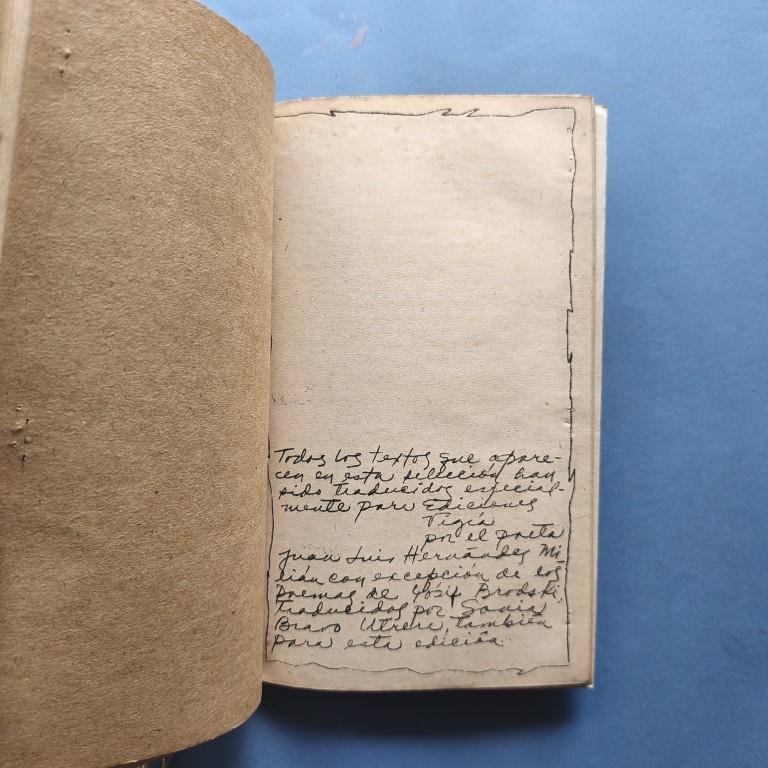 Todos los textos que apare-
cen en esta selección han
sido traducidos especial-
mente para Ediciones
Vigía
por el poeta
Juan Luis Hernández Mi-
lián con excepción de los
poemas de Yósif Brodski,
traducidos por Sonia
Bravo Utrera, también
para esta edición.